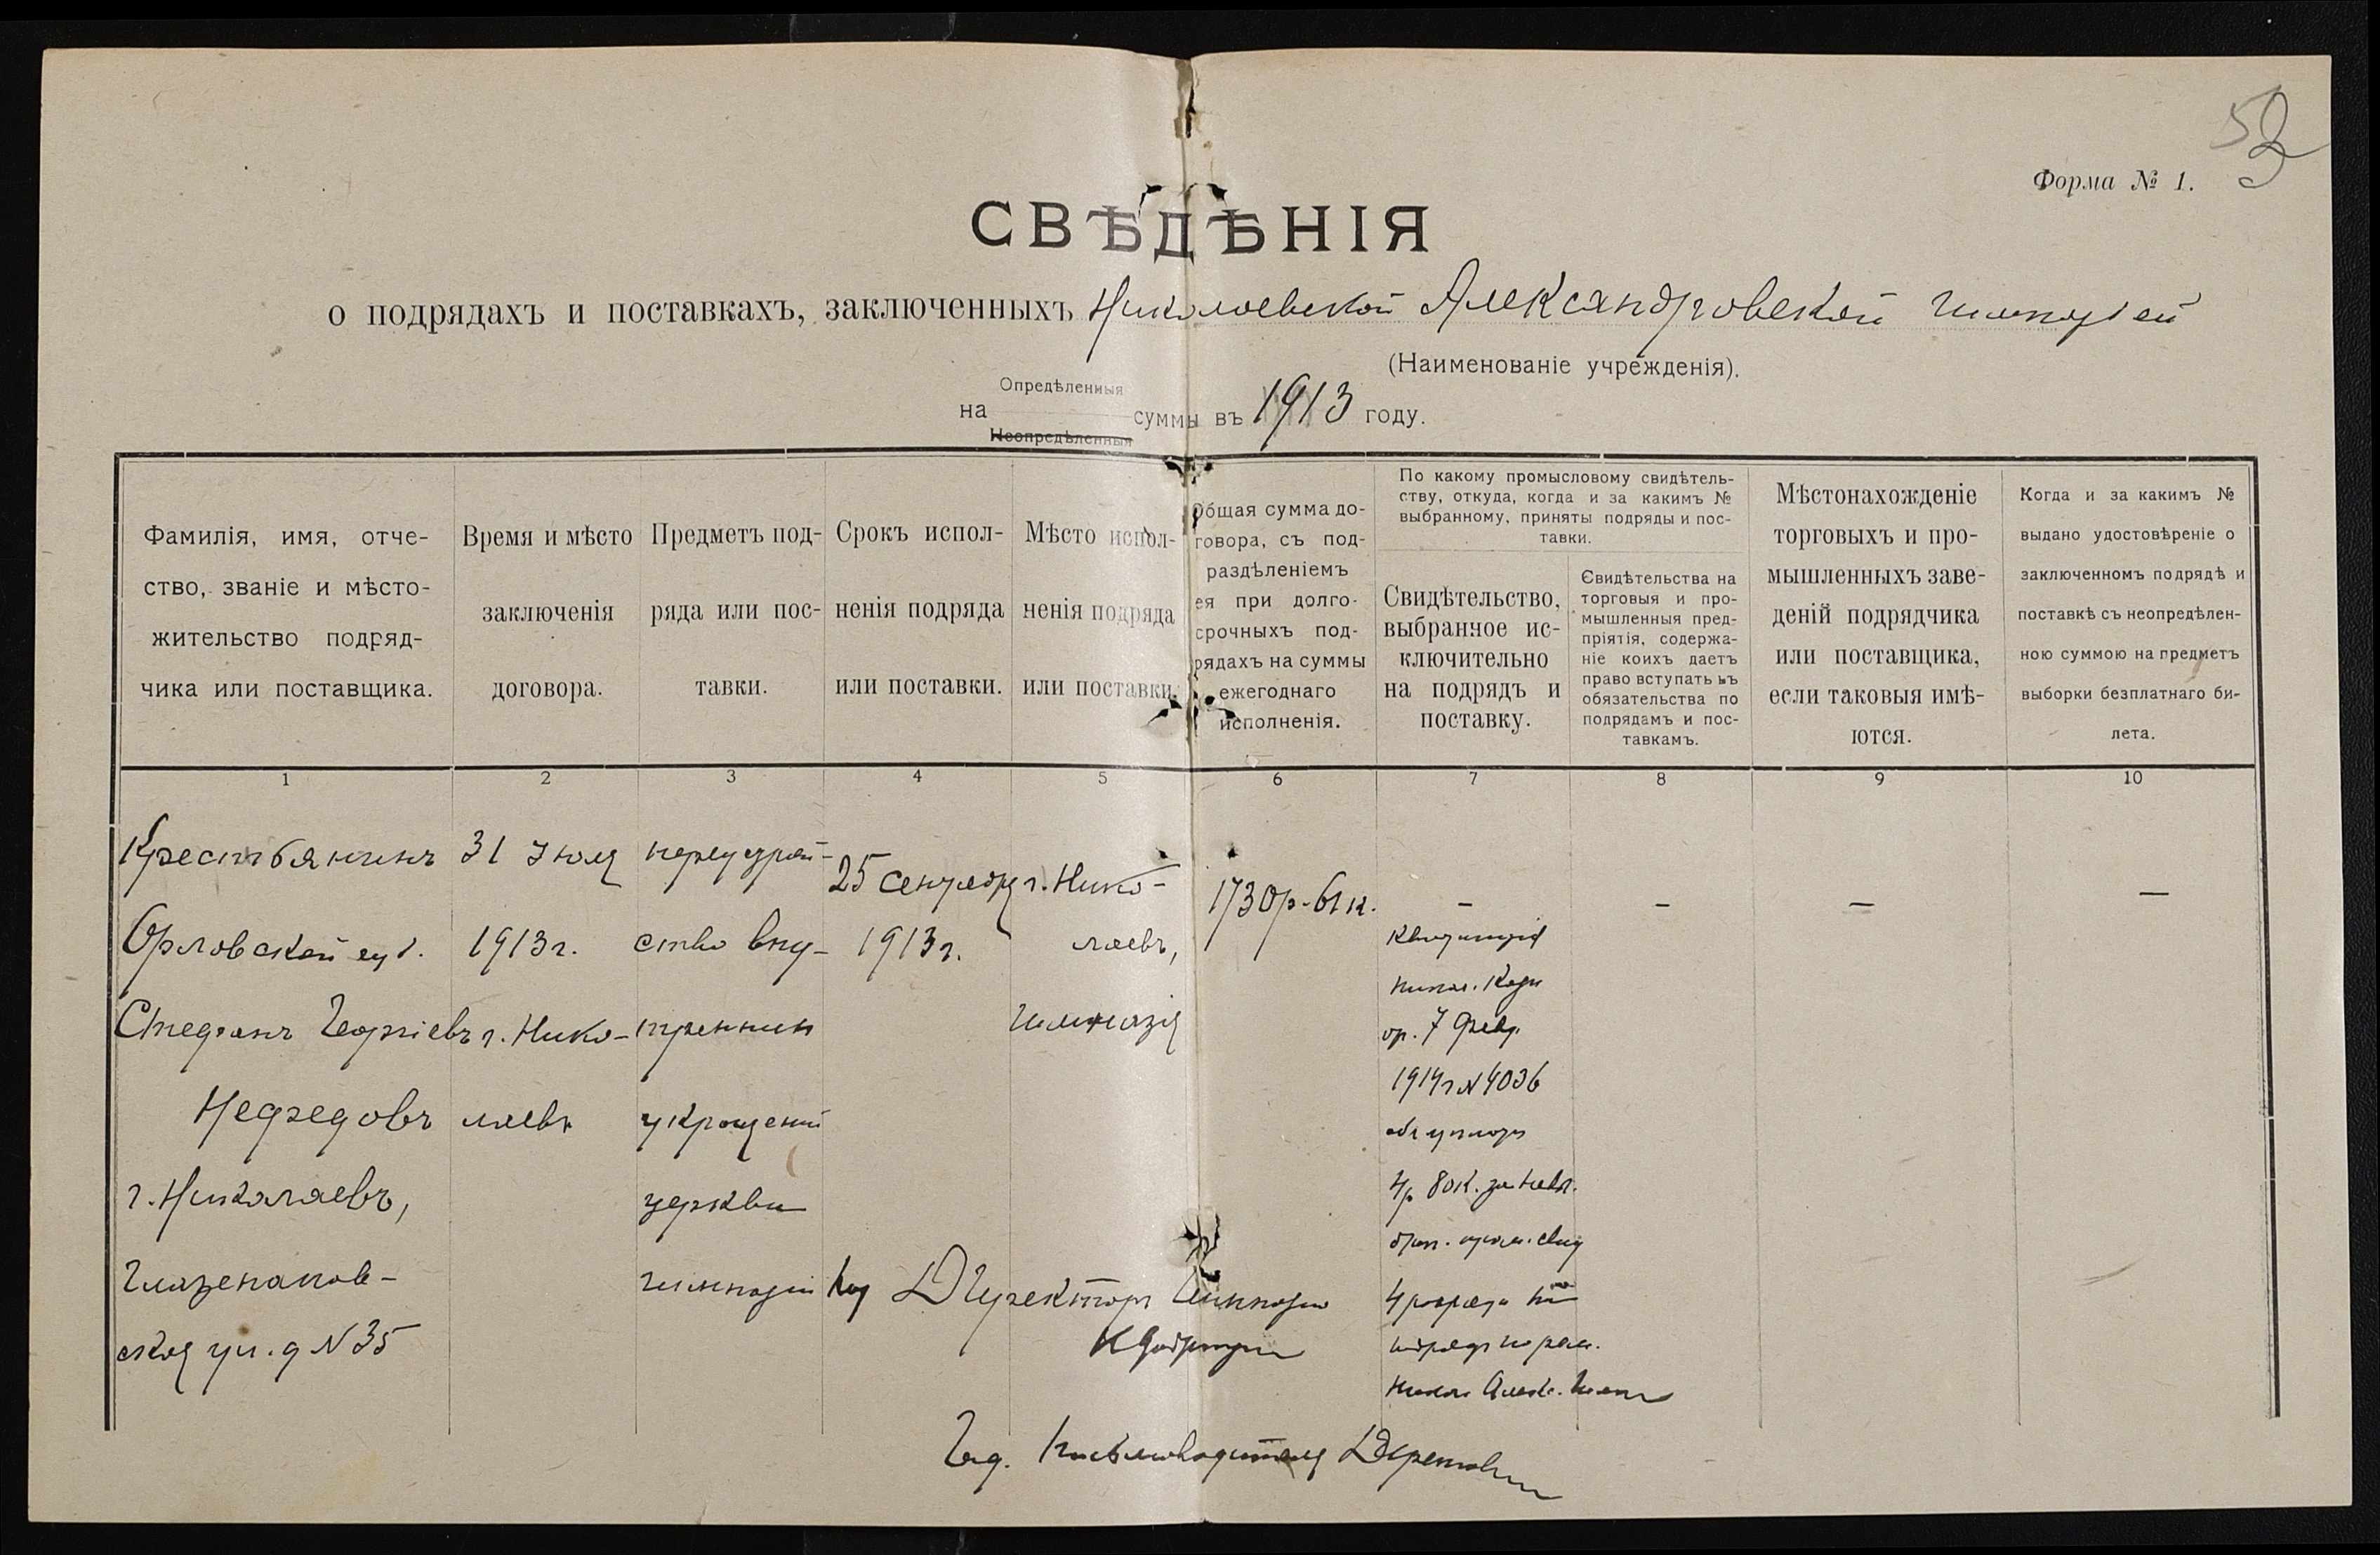 53
Форма № 1.
СВѢДѢНІЯ
о подрядахъ и поставкахъ, заключенныхъ Николаевской Александровской гимназіей
(Наименованіе учрежденія).
Опредѣленныя
на суммы въ 1913 году.
Неопредѣленныя
Фамилія, имя, отче-
ство, званіе и мѣсто-
жительство подряд-
чика или поставщика.
Время и мѣсто
заключенія
договора.
Предметъ под-
ряда или пос-
тавки.
Срокъ испол-
ненія подряда
или поставки.
Мѣсто испол-
ненія подряда
или поставки.
Общая сумма до-
говора, съ под-
раздѣленіемъ
ея при долго-
срочныхъ под-
рядахъ на суммы
ежегоднаго
исполненія.
По какому промысловому свидѣтель-
ству, откуда, когда и за какимъ №
выбранному, приняты подряды и пос-
тавки.
Свидѣтельство,
выбранное ис-
ключительно
на подрядъ и
поставку.
Свидѣтельства на
торговыя и про-
мышленныя пред-
пріятія, содержа-
ніе коихъ даетъ
право вступать въ
обязательства по
подрядамъ и пос-
тавкамъ.
Мѣстонахожденіе
торговыхъ и про-
мышленныхъ заве-
деній подрядчика
или поставщика,
если таковыя имѣ-
ются.
Когда и за какимъ №
выдано удостовѣреніе о
заключенномъ подрядѣ и
поставкѣ съ неопредѣлен-
ною суммою на предметъ
выборки безплатнаго би-
лета.
1 2 3 4 5 6 7 8 9 10
Крестьянинъ
Орловской губ.
Стефанъ Георгіевъ
Нефедовъ
г. Николаевъ,
ская ул. д N 35
31 Іюля
1913 г.
г. Нико-
лаевъ
переустрой-
ство вну-
тренних
украшений
церкви
гимназіи
25 сентября
1913 г.
г. Нико-
лаевъ,
Гимназія
1730 р. 61 к.
—
Квитанція
Никол. Казн
от 7 Февр.
1914 г N 4036
объ уплатѣ
4 р 80 к. за
пром. свид
4 разряда
Никол. Алекс. Гимн
—
—
—
Директоръ Гимназіи
Письмоводителя